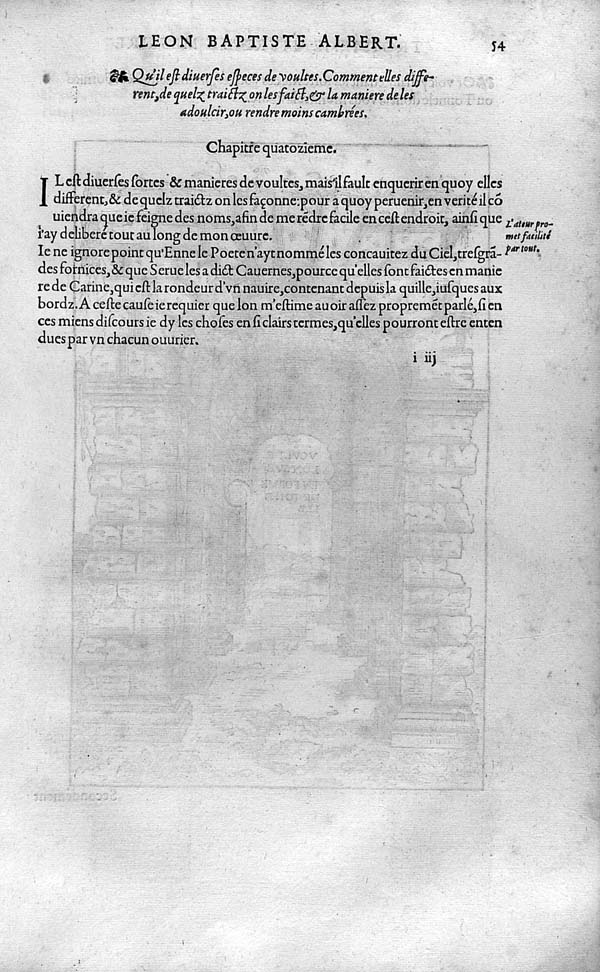 LEON BAPTISTE ALBERT. 54
Qu'il est diuerses especes de voultes. Comment elles diffe-
rent, de quelz traictz on les faict, & la maniere de les
adoulcir, ou rendre moins cambrées.
Chapitre quatozieme.
IL est diuerses sortes & manieres de voultes, mais il fault enquerir en quoy elles
different, & de quelz traictz on les façonne: pour a quoy peruenir, en verité il cō
uiendra que ie feigne des noms, afin de me rēdre facile en cest endroit, ainsi que
i'ay deliberé tout au long de mon œuure.
L'ateur pro-
met facilité
par tout.
Ie ne ignore point qu'Enne le Poete n'ayt nommé les concauitez du Ciel, tresgrā-
des fornices, & que Serue les a dict Cauernes, pource qu'elles sont faictes en manie
re de Carine, qui est la rondeur d'vn nauire, contenant depuis la quille, iusques aux
bordz. A ceste cause ie requier que lon m'estime auoir assez propremēt parlé, si en
ces miens discours ie dy les choses en si clairs termes, qu'elles pourront estre enten
dues par vn chacun ouurier.
i iij